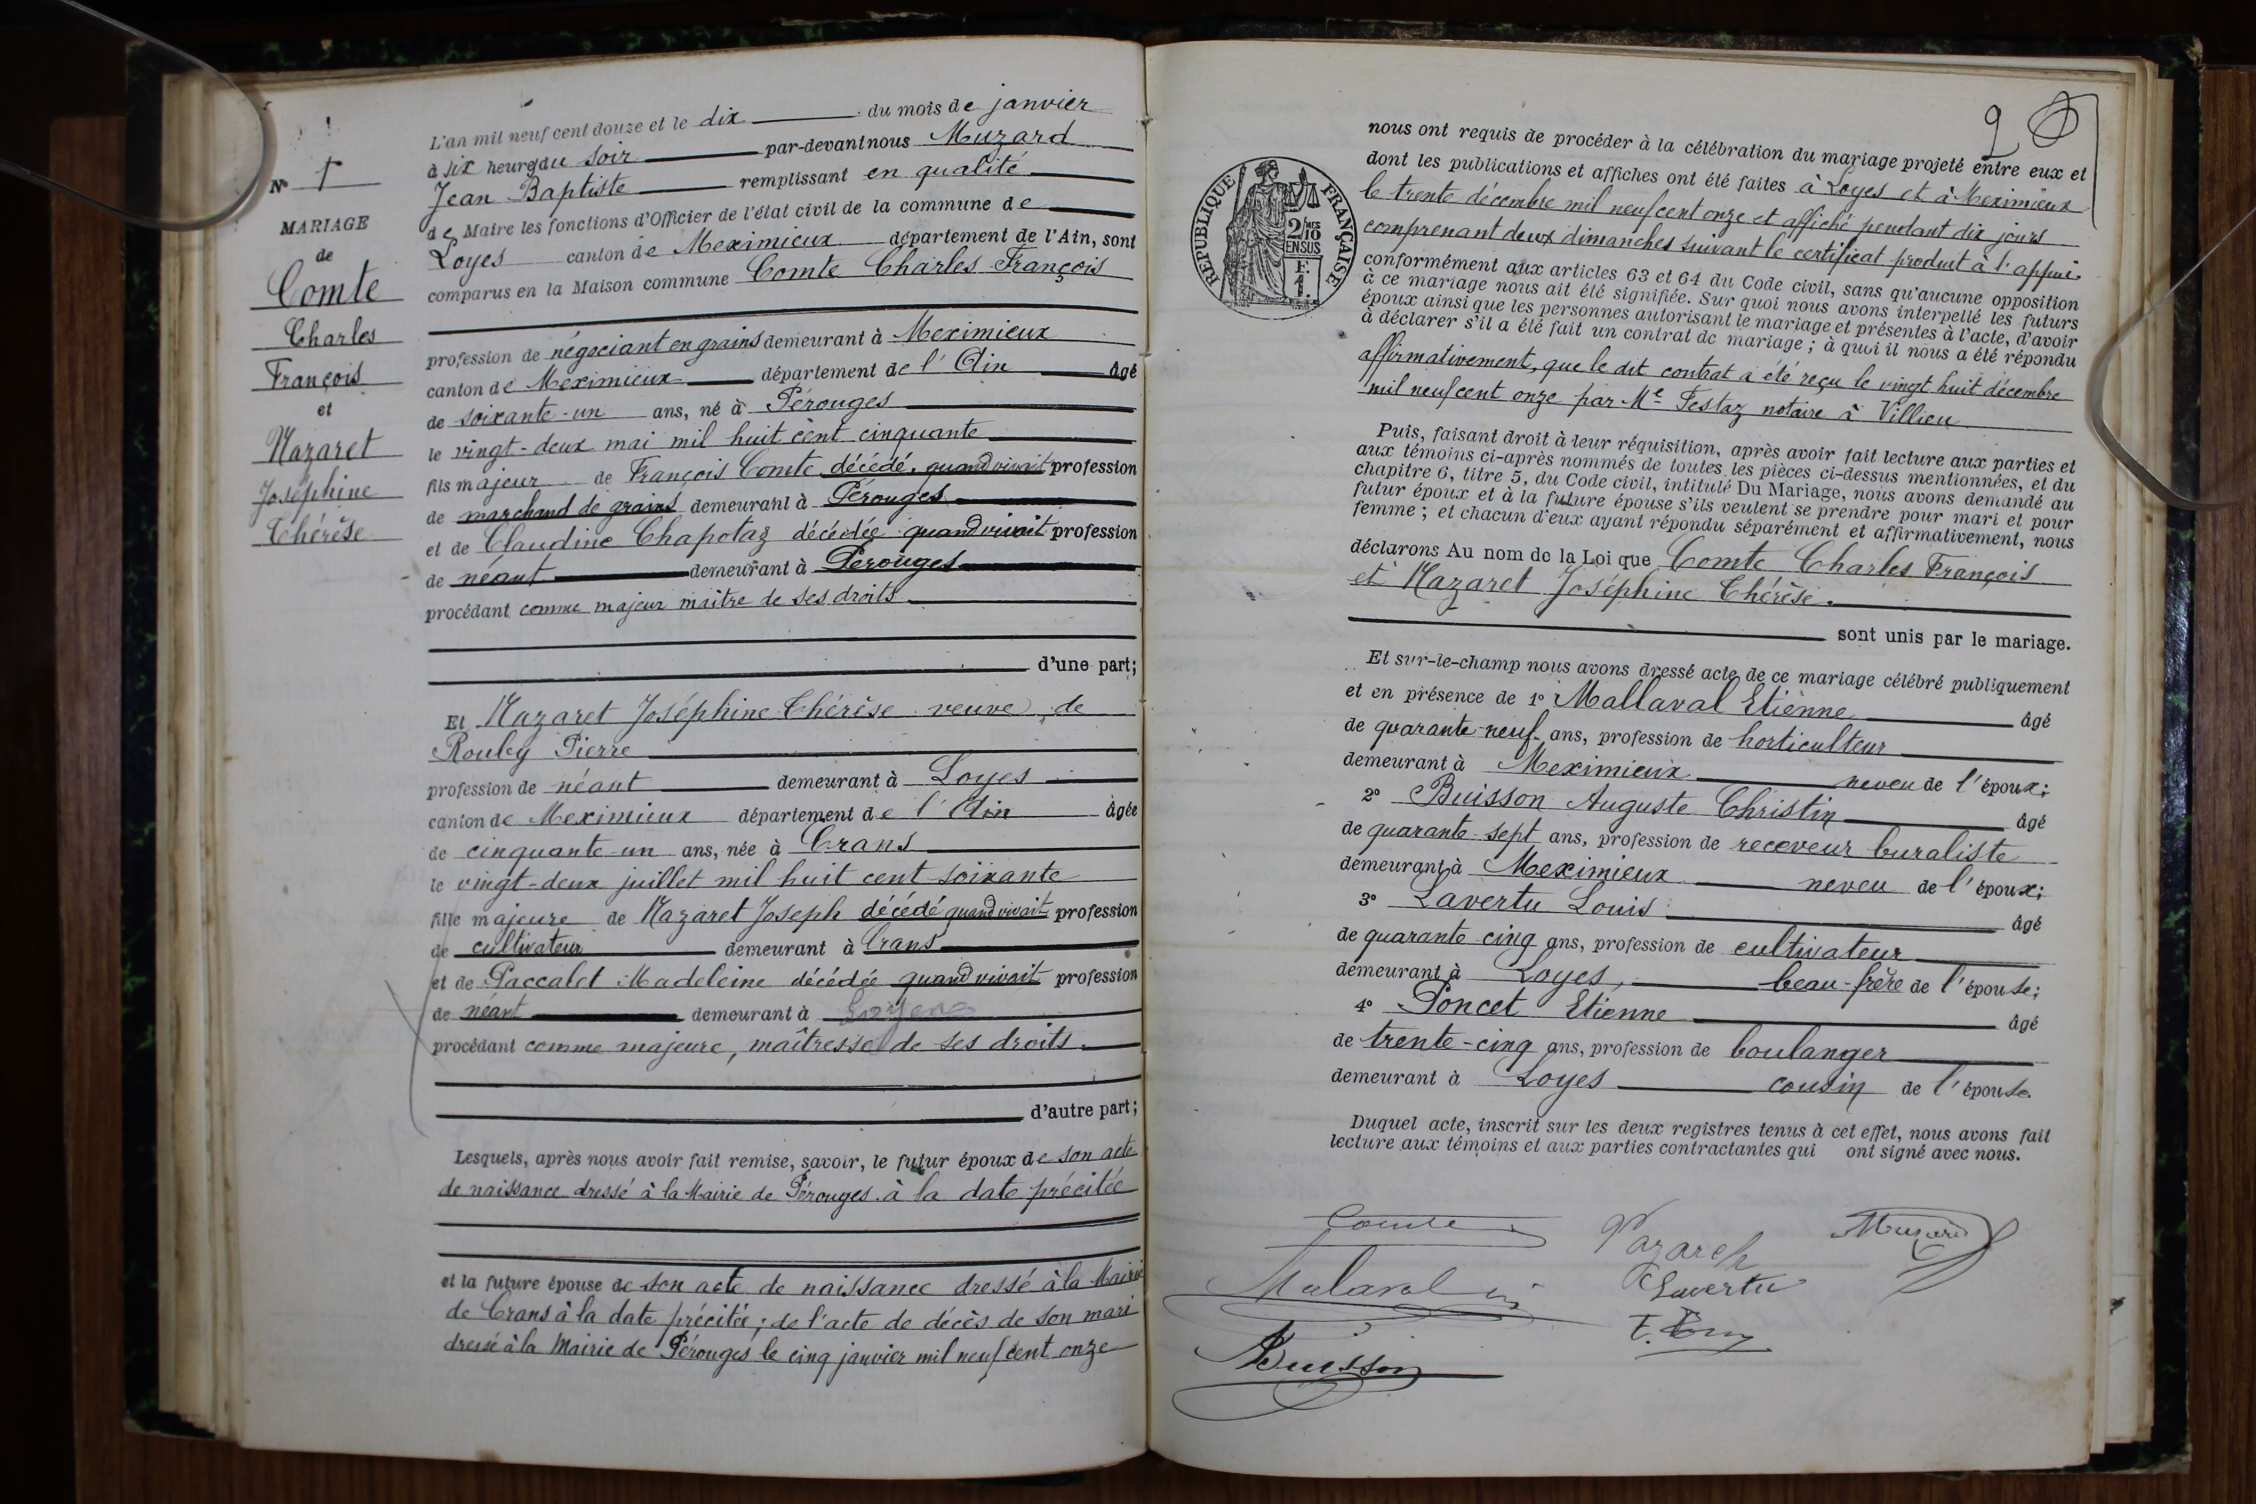 N° 1
MARIAGE
de
Comte
Charles
François
et
Nazaret
Joséphine
Thérèse
L'an mil neuf cent douze et le dix du mois de janvier
à six heures du soir par-devant nous Muzard
Jean Baptiste remplissant en qualité
de Maire les fonctions d'Officier de l'état civil de la commune de
Loyes canton de Meximieux département de l'Ain, sont
comparus en la Maison commune Comte Charles François
profession de négociant en grains demeurant à Meximieux
canton de Meximieux département de l'Ain âgé
de soixante-un ans, né à Pérouges
le vingt-deux mai mil huit cent cinquante
fils majeur de François Comte décédé, quand vivait profession
de marchand de grains demeurant à Pérouges
et de Claudine Chapotaz décédée quand vivait profession
de néant demeurant à Pérouges
procédant comme majeur maître de ses droits.
d'une part;
Et Nazaret Joséphine Thérèse veuve de
Rouby Pierre
profession de néant demeurant à Loyes
canton de Meximieux département de l'Ain âgée
de cinquante-un ans, née à Crans
le vingt-deux juillet mil huit cent soixante
fille majeure de Nazaret Joseph décédé quand vivait profession
de cultivateur demeurant à Crans
et de Paccalet Madeleine décédée quand vivait profession
de néant demeurant à
procédant comme majeure, maîtresse de ses droits.
d'autre part;
Lesquels, après nous avoir fait remise, savoir, le futur époux de son acte
de naissance dressé à la Mairie de Pérouges à la date précitée
et la future épouse de son acte de naissance dressé à la Mairie
de Crans à la date précitée; de l'acte de décès de son mari
dressé à la Mairie de Pérouges le cinq janvier mil neuf cent onze
2
RÉPUBLIQUE FRANÇAISE
2/10 MES
EN SUS
F.
1.
nous ont requis de procéder à la célébration du mariage projeté entre eux et
dont les publications et affiches ont été faites à Loyes et à Meximieux
le trente décembre mil neuf cent onze et affiché pendant dix jours
comprenant deux dimanches suivant le certificat produit à l'appui
conformément aux articles 63 et 64 du Code civil, sans qu'aucune opposition
à ce mariage nous ait été signifiée. Sur quoi nous avons interpellé les futurs
époux ainsi que les personnes autorisant le mariage et présentes à l'acte, d'avoir
à déclarer s'il a été fait un contrat de mariage; à quoi il nous a été répondu
affirmativement, que le dit contrat a été reçu le vingt huit décembre
mil neuf cent onze par Me Festaz notaire à Villieu
Puis, faisant droit à leur réquisition, après avoir fait lecture aux parties et
aux témoins ci-après nommés de toutes les pièces ci-dessus mentionnées, et du
chapitre 6, titre 5, du Code civil, intitulé Du Mariage, nous avons demandé au
futur époux et à la future épouse s'ils veulent se prendre pour mari et pour
femme; et chacun d'eux ayant répondu séparément et affirmativement, nous
déclarons Au nom de la Loi que Comte Charles François
et Nazaret Joséphine Thérèse.
sont unis par le mariage.
Et sur-le-champ nous avons dressé acte de ce mariage célébré publiquement
et en présence de 1° Mallaval Etienne âgé
de quarante-neuf ans, profession de horticulteur
demeurant à Meximieux neveu de l'époux;
2° Buisson Auguste Christin âgé
de quarante-sept ans, profession de receveur buraliste
demeurant à Meximieux neveu de l'époux;
3° Lavertu Louis âgé
de quarante cinq ans, profession de cultivateur
demeurant à Loyes, beau-frère de l'épouse;
4° Poncet Etienne âgé
de trente-cinq ans, profession de boulanger
demeurant à Loyes cousin de l'épouse.
Duquel acte, inscrit sur les deux registres tenus à cet effet, nous avons fait
lecture aux témoins et aux parties contractantes qui ont signé avec nous.
Comte
Muzard
Lavertu
Buisson